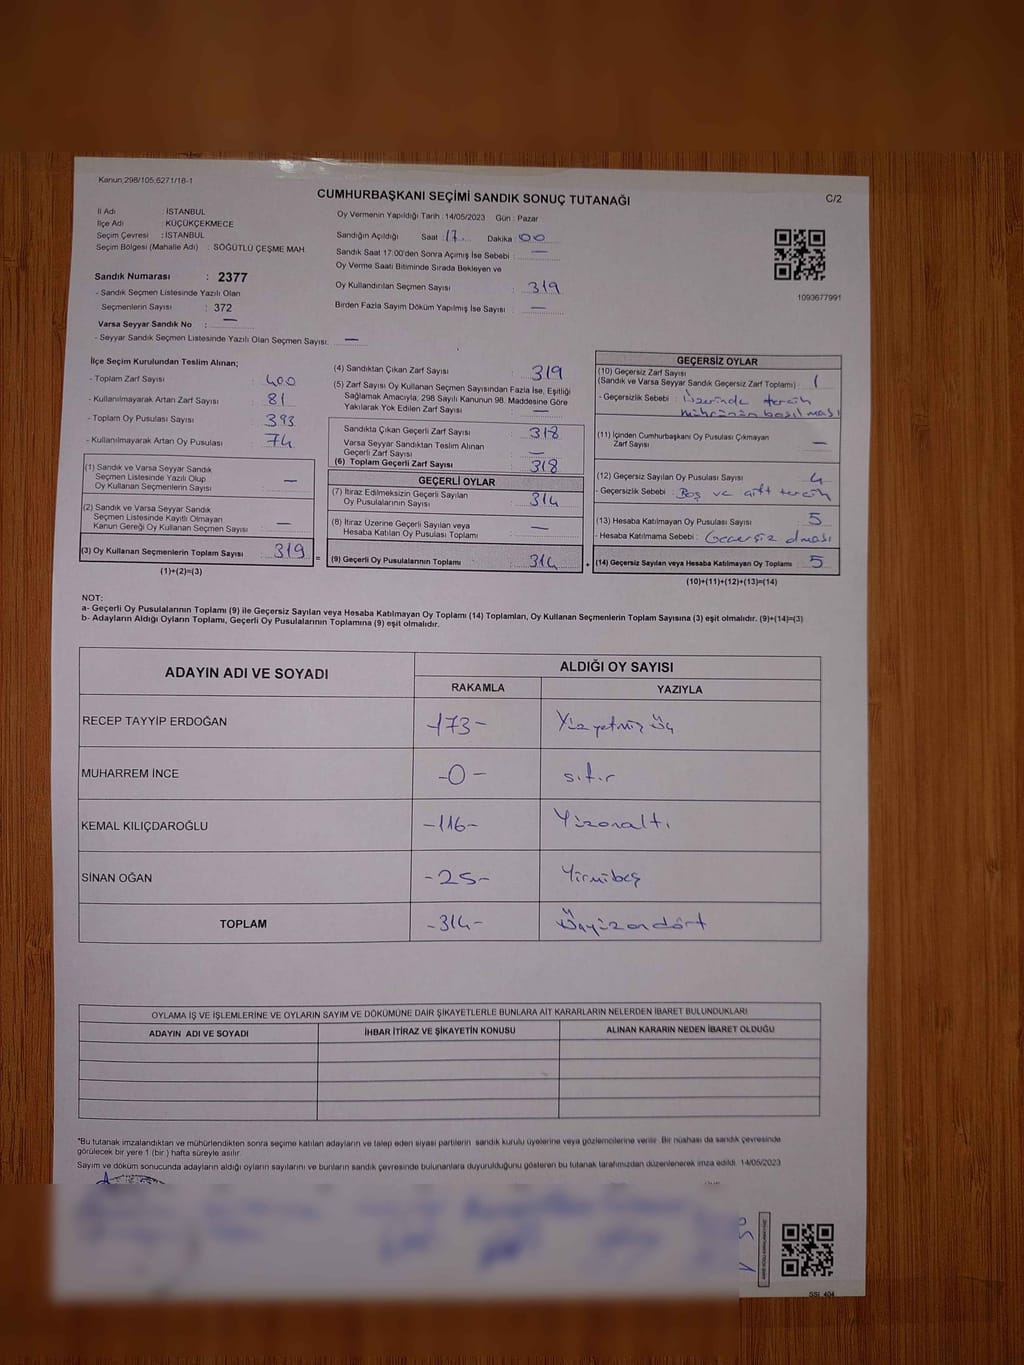 Kanun:298/105;6271/18-1
CUMHURBAŞKANI SEÇİMİ SANDIK SONUÇ TUTANAĞI
C/2
İl Adı : İSTANBUL
İlçe Adı : KÜÇÜKÇEKMECE
Seçim Çevresi : İSTANBUL
Seçim Bölgesi (Mahalle Adı) : SÖĞÜTLÜ ÇEŞME MAH.
Sandık Numarası : 2377
- Sandık Seçmen Listesinde Yazılı Olan
Seçmenlerin Sayısı : 372
Varsa Seyyar Sandık No : —
- Seyyar Sandık Seçmen Listesinde Yazılı Olan Seçmen Sayısı: —
Oy Vermenin Yapıldığı Tarih : 14/05/2023 Gün : Pazar
Sandığın Açıldığı Saat : 17 Dakika : 00
Sandık Saat 17:00'den Sonra Açılmış İse Sebebi : —
Oy Verme Saati Bitiminde Sırada Bekleyen ve
Oy Kullandırılan Seçmen Sayısı : 319
Birden Fazla Sayım Döküm Yapılmış İse Sayısı : —
1093677991
İlçe Seçim Kurulundan Teslim Alınan;
- Toplam Zarf Sayısı : 400
- Kullanılmayarak Artan Zarf Sayısı : 81
- Toplam Oy Pusulası Sayısı : 393
- Kullanılmayarak Artan Oy Pusulası : 74
(1) Sandık ve Varsa Seyyar Sandık
Seçmen Listesinde Yazılı Olup
Oy Kullanan Seçmenlerin Sayısı : —
(2) Sandık ve Varsa Seyyar Sandık
Seçmen Listesinde Kayıtlı Olmayan
Kanun Gereği Oy Kullanan Seçmen Sayısı : —
(3) Oy Kullanan Seçmenlerin Toplam Sayısı : 319
(1)+(2)=(3)
(4) Sandıktan Çıkan Zarf Sayısı : 319
(5) Zarf Sayısı Oy Kullanan Seçmen Sayısından Fazla İse, Eşitliği
Sağlamak Amacıyla, 298 Sayılı Kanunun 98. Maddesine Göre
Yakılarak Yok Edilen Zarf Sayısı : —
Sandıkta Çıkan Geçerli Zarf Sayısı : 318
Varsa Seyyar Sandıktan Teslim Alınan
Geçerli Zarf Sayısı : —
(6) Toplam Geçerli Zarf Sayısı : 318
GEÇERLİ OYLAR
(7) İtiraz Edilmeksizin Geçerli Sayılan
Oy Pusulalarının Sayısı : 314
(8) İtiraz Üzerine Geçerli Sayılan veya
Hesaba Katılan Oy Pusulası Toplamı : —
= (9) Geçerli Oy Pusulalarının Toplamı : 314
GEÇERSİZ OYLAR
(10) Geçersiz Zarf Sayısı
(Sandık ve Varsa Seyyar Sandık Geçersiz Zarf Toplamı) : 1
- Geçersizlik Sebebi : Üzerinde tercih
mührünün basılması
(11) İçinden Cumhurbaşkanı Oy Pusulası Çıkmayan
Zarf Sayısı : —
(12) Geçersiz Sayılan Oy Pusulası Sayısı : 4
- Geçersizlik Sebebi : Boş ve çift tercih
(13) Hesaba Katılmayan Oy Pusulası Sayısı : 5
- Hesaba Katılmama Sebebi : Geçersiz olması
+ (14) Geçersiz Sayılan veya Hesaba Katılmayan Oy Toplamı : 5
(10)+(11)+(12)+(13)=(14)
NOT:
a- Geçerli Oy Pusulalarının Toplamı (9) ile Geçersiz Sayılan veya Hesaba Katılmayan Oy Toplamı (14) Toplamları, Oy Kullanan Seçmenlerin Toplam Sayısına (3) eşit olmalıdır. (9)+(14)=(3)
b- Adayların Aldığı Oyların Toplamı, Geçerli Oy Pusulalarının Toplamına (9) eşit olmalıdır.
ADAYIN ADI VE SOYADI ALDIĞI OY SAYISI
RAKAMLA YAZIYLA
RECEP TAYYİP ERDOĞAN -173- Yüzyetmiş üç
MUHARREM İNCE -0- sıfır
KEMAL KILIÇDAROĞLU -116- Yüzonaltı
SİNAN OĞAN -25- Yirmibeş
TOPLAM -314- Üçyüzondört
OYLAMA İŞ VE İŞLEMLERİNE VE OYLARIN SAYIM VE DÖKÜMÜNE DAİR ŞİKAYETLERLE BUNLARA AİT KARARLARIN NELERDEN İBARET BULUNDUKLARI
ADAYIN ADI VE SOYADI İHBAR İTİRAZ VE ŞİKAYETİN KONUSU ALINAN KARARIN NEDEN İBARET OLDUĞU
*Bu tutanak imzalandıktan ve mühürlendikten sonra seçime katılan adayların ve talep eden siyasi partilerin sandık kurulu üyelerine veya gözlemcilerine verilir. Bir nüshası da sandık çevresinde
görülecek bir yere 1 (bir ) hafta süreyle asılır.
Sayım ve döküm sonucunda adayların aldığı oyların sayılarını ve bunların sandık çevresinde bulunanlara duyurulduğunu gösteren bu tutanak tarafımızdan düzenlenerek imza edildi. 14/05/2023
SSİ_404